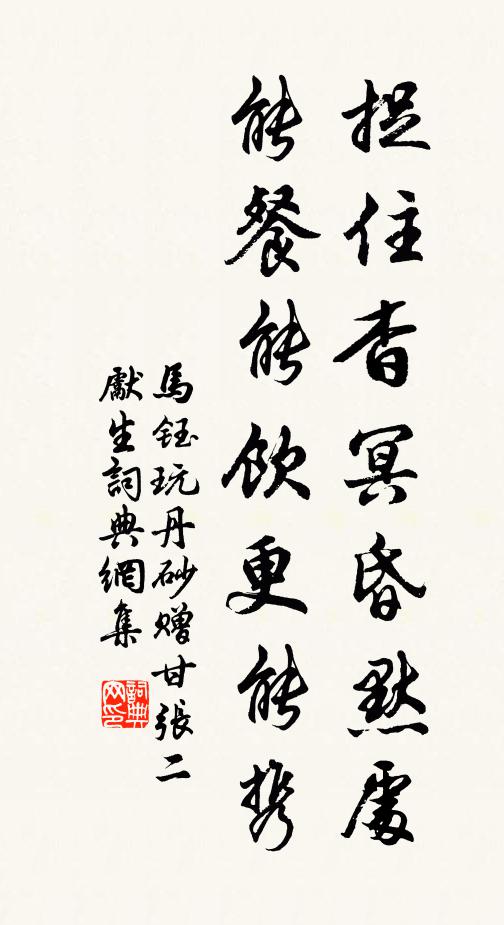 捉住杳冥昏默處
能餐能飲更能携
馬鈺玩丹砂赠甘張二
獻生詞典網集
詞典網印